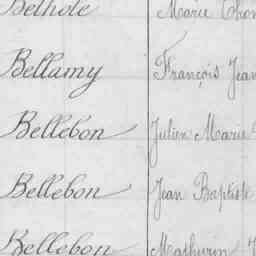 Belhole Marie Thom
Bellamy François Jean
Bellebon Julien Marie
Bellebon Jean Baptiste
Bellebon Mathurin